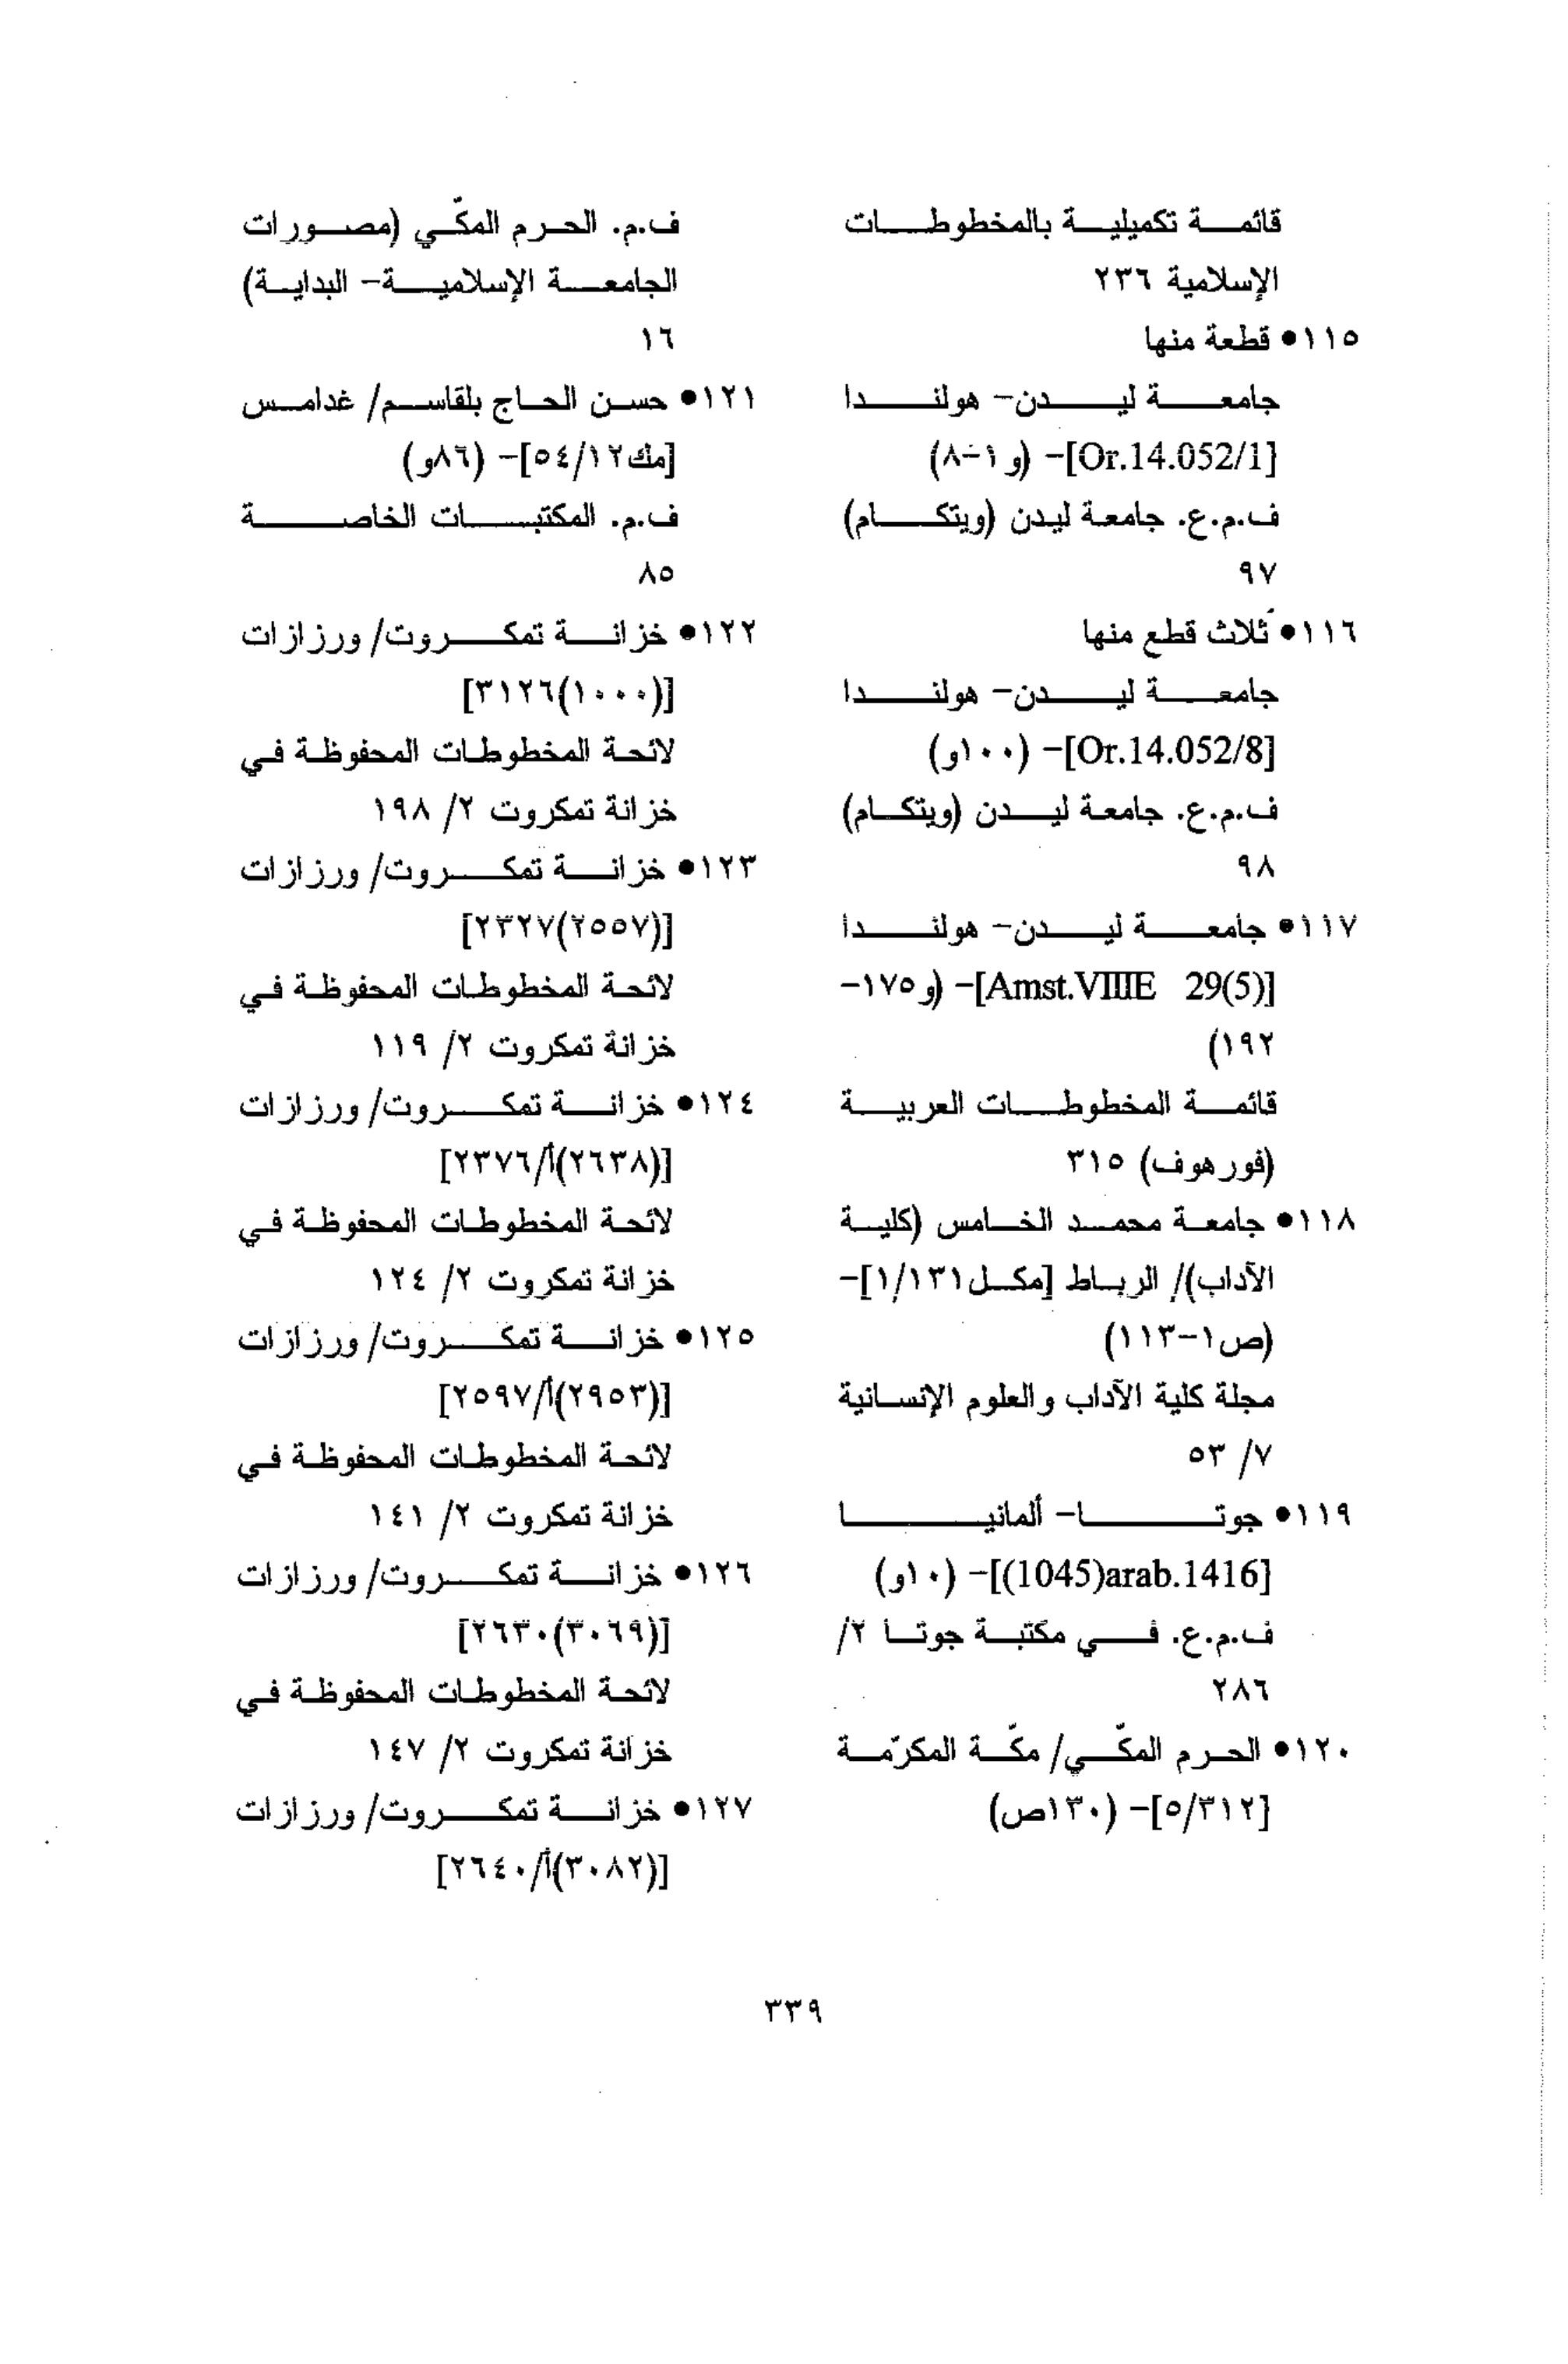 قائمة تكميلية بالمخطوطات
الإسلامية ٢٣٦
١١٥• قطعة منها
جامعة ليدن- هولندا
[Or.14.052/1]- (و١-٨)
ف.م.ع. جامعة ليدن (ويتكام)
٩٧
١١٦• ثلاث قطع منها
جامعة ليدن- هولندا
[Or.14.052/8]- (١٠٠و)
ف.م.ع. جامعة ليدن (ويتكام)
٩٨
١١٧• جامعة ليدن- هولندا
[Amst.VIIIE 29(5)]- (و١٧٥-
١٩٢)
قائمة المخطوطات العربية
(فورهوف) ٣١٥
١١٨• جامعة محمد الخامس (كلية
الآداب)/ الرباط [مكل١/١٣١]-
(ص١-١١٣)
مجلة كلية الآداب والعلوم الإنسانية
٧/ ٥٣
١١٩• جوتا- ألمانيا
[(1045)arab.1416]- (١٠و)
ف.م.ع. في مكتبة جوتا ٢/
٢٨٦
١٢٠• الحرم المكّي/ مكّة المكرّمة
[٥/٣١٢]- (١٣٠ص)
ف.م. الحرم المكّي (مصورات
الجامعة الإسلامية- البداية)
١٦
١٢١• حسن الحاج بلقاسم/ غدامس
[مك٥٤/١٢]- (٨٦و)
ف.م. المكتبات الخاصة
٨٥
١٢٢• خزانة تمكروت/ ورزازات
[(١٠٠٠)٣١٢٦]
لائحة المخطوطات المحفوظة في
خزانة تمكروت ٢/ ١٩٨
١٢٣• خزانة تمكروت/ ورزازات
[(٢٥٥٧)٢٣٢٧]
لائحة المخطوطات المحفوظة في
خزانة تمكروت ٢/ ١١٩
١٢٤• خزانة تمكروت/ ورزازات
[(٢٦٣٨)أ/٢٣٧٦]
لائحة المخطوطات المحفوظة في
خزانة تمكروت ٢/ ١٢٤
١٢٥• خزانة تمكروت/ ورزازات
[(٢٩٥٣)أ/٢٥٩٧]
لائحة المخطوطات المحفوظة في
خزانة تمكروت ٢/ ١٤١
١٢٦• خزانة تمكروت/ ورزازات
[(٣٠٦٩)٢٦٣٠]
لائحة المخطوطات المحفوظة في
خزانة تمكروت ٢/ ١٤٧
١٢٧• خزانة تمكروت/ ورزازات
[(٣٠٨٢)أ/٢٦٤٠]
٣٣٩